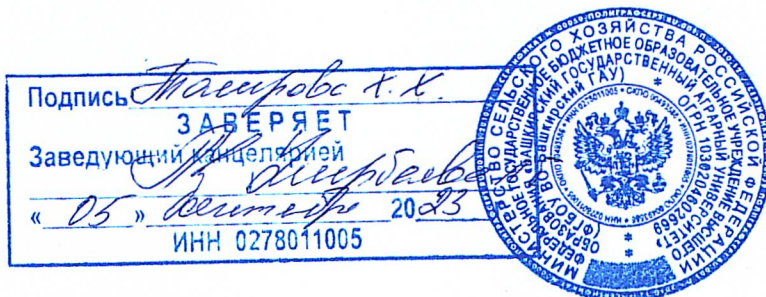 Подпись Тагирова Х.Х.
ЗАВЕРЯЕТ
Заведующий канцелярией
« 05 » сентября 2023
ИНН 0278011005
МИНИСТЕРСТВО СЕЛЬСКОГО ХОЗЯЙСТВА РОССИЙСКОЙ ФЕДЕРАЦИИ
ФЕДЕРАЛЬНОЕ ГОСУДАРСТВЕННОЕ БЮДЖЕТНОЕ ОБРАЗОВАТЕЛЬНОЕ УЧРЕЖДЕНИЕ ВЫСШЕГО
ОБРАЗОВАНИЯ «БАШКИРСКИЙ ГОСУДАРСТВЕННЫЙ АГРАРНЫЙ УНИВЕРСИТЕТ»
(ФГБОУ ВО Башкирский ГАУ) ОГРН 1030204602669